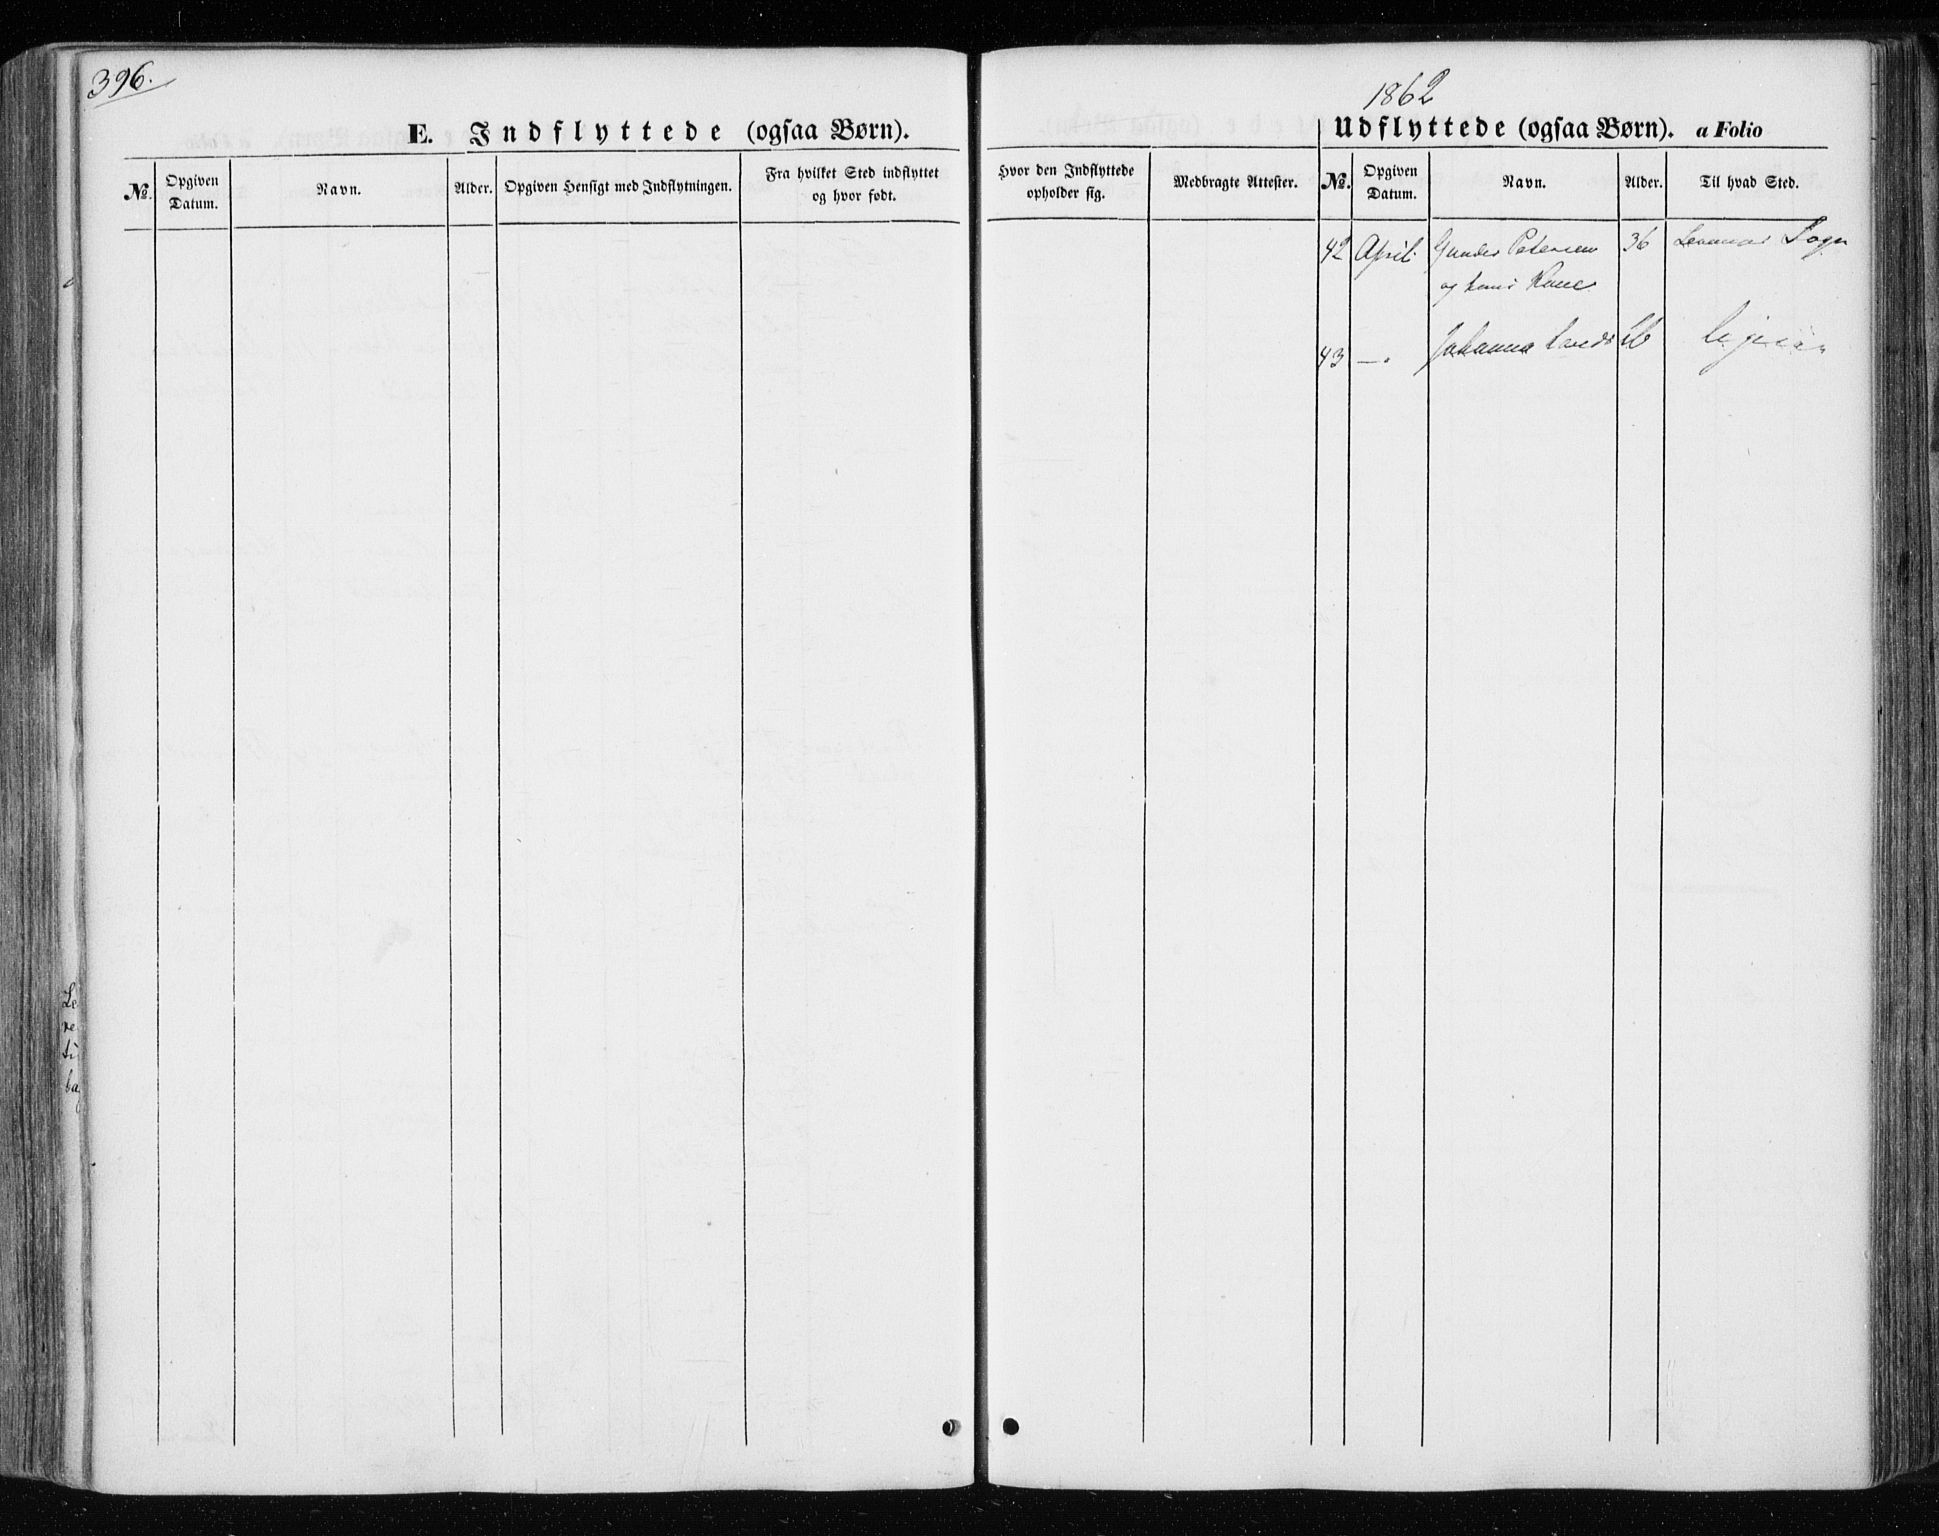 396.
E. Indflyttede (ogsaa Børn).
No. Opgiven Datum. Navn. Alder. Opgiven Hensigt med Indflytningen. Fra hvilket Sted indflyttet og hvor født.
1862
Udflyttede (ogsaa Børn). a Folio
Hvor den Indflyttede opholder sig. Medbragte Attester. No. Opgiven Datum. Navn. Alder. Til hvad Sted.
42 April Gunder Petersen 36 Sogn
og hans Kone
43 — Johanna